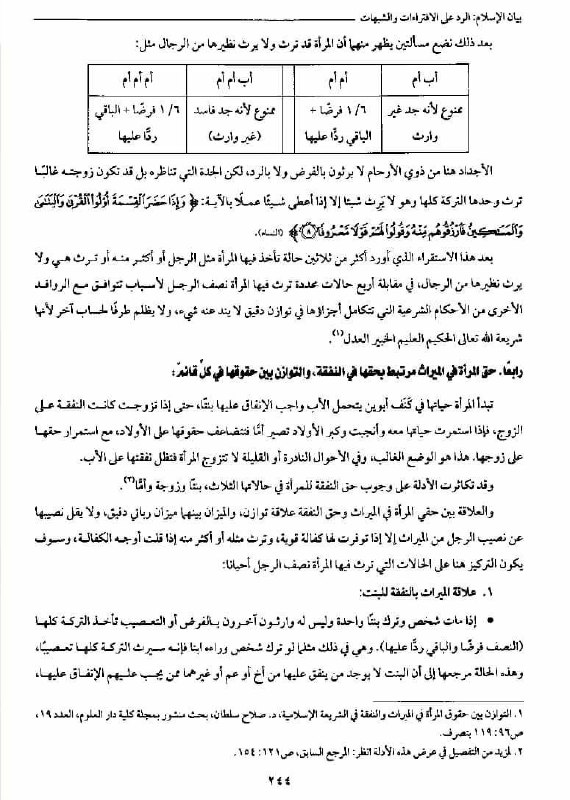 بيان الإسلام: الرد على الافتراءات والشبهات
بعد ذلك نضع مسألتين يظهر منهما أن المرأة قد ترث ولا يرث نظيرها من الرجال مثل:
أب أم | أم أم | أب أم أم | أم أم أم
ممنوع لأنه جد غير وارث | ١/٦ فرضًا + الباقي ردًّا عليها | ممنوع لأنه جد فاسد (غير وارث) | ١/٦ فرضًا + الباقي ردًّا عليها
الأجداد هنا من ذوي الأرحام لا يرثون بالفرض ولا بالرد، لكن الجدة التي تناظره بل قد تكون زوجته غالبًا
ترث وحدها التركة كلها وهو لا يَرِث شيئا إلا إذا أعطى شيئًا عملًا بالآية: ﴿ وَإِذَا حَضَرَ ٱلْقِسْمَةَ أُو۟لُوا۟ ٱلْقُرْبَىٰ وَٱلْيَتَٰمَىٰ
وَٱلْمَسَٰكِينُ فَٱرْزُقُوهُم مِّنْهُ وَقُولُوا۟ لَهُمْ قَوْلًا مَّعْرُوفًا ⑧ ﴾ (النساء).
بعد هذا الاستقراء الذي أورد أكثر من ثلاثين حالة تأخذ فيها المرأة مثل الرجل أو أكثر منه أو ترث هي ولا
يرث نظيرها من الرجال، في مقابلة أربع حالات محددة ترث فيها المرأة نصف الرجل لأسباب تتوافق مع الروافد
الأخرى من الأحكام الشرعية التي تتكامل أجزاؤها في توازن دقيق لا يند عنه شيء، ولا يظلم طرفًا لحساب آخر لأنها
شريعة الله تعالى الحكيم العليم الخبير العدل(١).
رابعًا. حق المرأة في الميراث مرتبط بحقها في النفقة، والتوازن بين حقوقها في كلٍّ قائم:
تبدأ المرأة حياتها في كَنَف أبوين يتحمل الأب واجب الإنفاق عليها بنتًا، حتى إذا تزوجت كانت النفقة على
الزوج، فإذا استمرت حياتها معه وأنجبت وكبر الأولاد تصير أمًّا فتتضاعف حقوقها على الأولاد، مع استمرار حقها
على زوجها. هذا هو الوضع الغالب، وفي الأحوال النادرة أو القليلة لا تتزوج المرأة فتظل نفقتها على الأب.
وقد تكاثرت الأدلة على وجوب حق النفقة للمرأة في حالاتها الثلاث، بنتًا وزوجة وأمًّا(٢).
والعلاقة بين حقي المرأة في الميراث وحق النفقة علاقة توازن، والميزان بينهما ميزان رباني دقيق، ولا يقل نصيبها
عن نصيب الرجل من الميراث إلا إذا توفرت لها كفالة قوية، وترث مثله أو أكثر منه إذا قلت أوجه الكفالة، وسوف
يكون التركيز هنا على الحالات التي ترث فيها المرأة نصف الرجل أحيانا:
١. علاقة الميراث بالنفقة للبنت:
• إذا مات شخص وترك بنتًا واحدة وليس له وارثون آخرون بالفرض أو التعصيب تأخذ التركة كلها
(النصف فرضًا والباقي ردًّا عليها). وهي في ذلك مثلما لو ترك شخص وراءه ابنا فإنه سيرث التركة كلها تعصيبًا،
وهذه الحالة مرجعها إلى أن البنت لا يوجد من ينفق عليها من أخ أو عم أو غيرهما ممن يجب عليهم الإنفاق عليها،
١. التوازن بين حقوق المرأة في الميراث والنفقة في الشريعة الإسلامية، د. صلاح سلطان، بحث منشور بمجلة كلية دار العلوم، العدد ١٩،
ص٩٦: ١١٩ بتصرف.
٢. لمزيد من التفصيل في عرض هذه الأدلة انظر: المرجع السابق، ص١٢١: ١٥٤.
٢٤٤